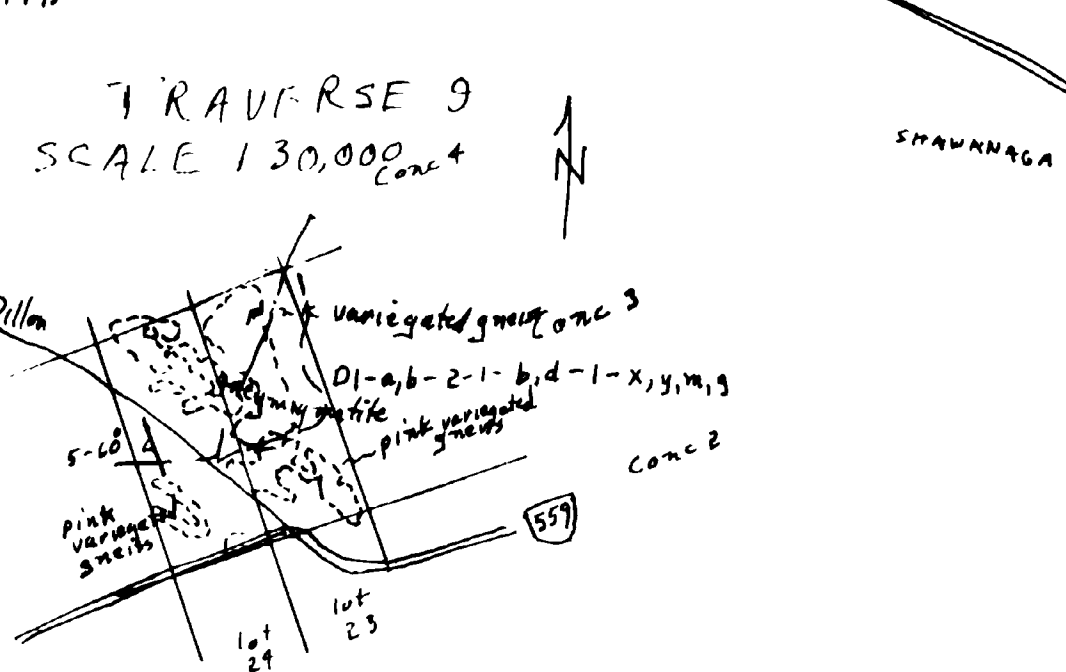 TRAVERSE 9
SCALE 1 30,000
conc 4
N
SHAWANAGA
Dillon
pink variegated gneiss
conc 3
D1-a,b-2-1-b,d-1-x,y,m,g
grey migmatite
pink variegated
gneiss
5-60°
conc 2
pink
variegated
gneiss
559
lot
23
lot
24